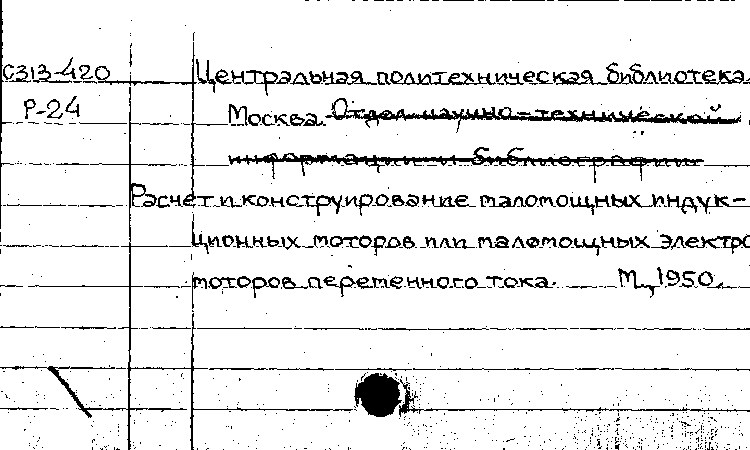 С313-420 Центральная политехническая библиотека.
Р-24 Москва. Отдел научно-технической
информации и библиографии
Расчет и конструирование маломощных индук-
ционных моторов или маломощных электро
моторов переменного тока. М., 1950.